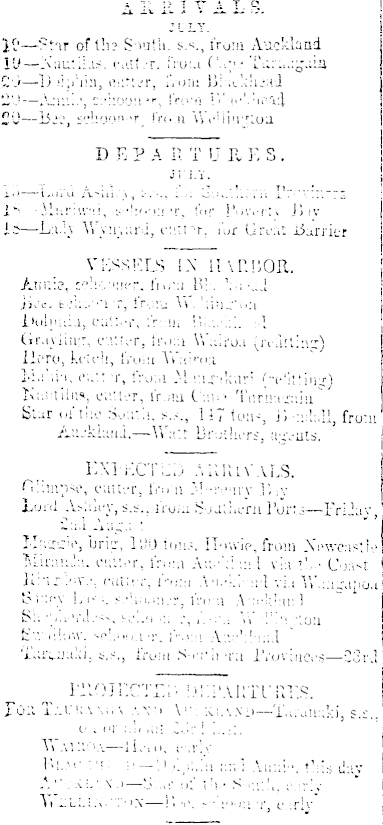 ARRIVALS.
JULY.
19—Star of the South, s.s., from Auckland
19—Nautilus, cutter, from Cape Turnagain
20—Dolphin, cutter, from Blackhead
20—Annie, schooner, from Blackhead
20—Bee, schooner, from Wellington
DEPARTURES.
JULY.
18—Lord Ashley, s.s., for Southern Provinces
18—Muriwai, schooner, for Poverty Bay
18—Lady Wynyard, cutter, for Great Barrier
VESSELS IN HARBOR.
Annie, schooner, from Blackhead
Bee, schooner, from Wellington
Dolphin, cutter, from Blackhead
Grayling, cutter, from Wairoa (refitting)
Hero, ketch, from Wairoa
cutter, from (refitting)
Nautilus, cutter, from Cape Turnagain
Star of the South, s.s., 147 tons, from
Auckland.—Watt Brothers, agents.
EXPECTED ARRIVALS.
Glimpse, cutter, from Mercury Bay
Lord Ashley, s.s., from Southern Ports—Friday,
2nd August
Maggie, brig, 190 tons, Howie, from Newcastle
Miranda, cutter, from Auckland via the Coast
cutter, from Auckland via Wangapoa
schooner, from Auckland
Shepherdess, schooner, from Wellington
Swallow, schooner, from Auckland
Taranaki, s.s., from Southern Provinces—23rd
PROJECTED DEPARTURES.
FOR TAURANGA AND AUCKLAND—Taranaki, s.s.,
on or about 23rd inst.
WAIROA—Hero, early
BLACKHEAD—Dolphin and Annie, this day
AUCKLAND—Star of the South, early
WELLINGTON—Bee, schooner, early